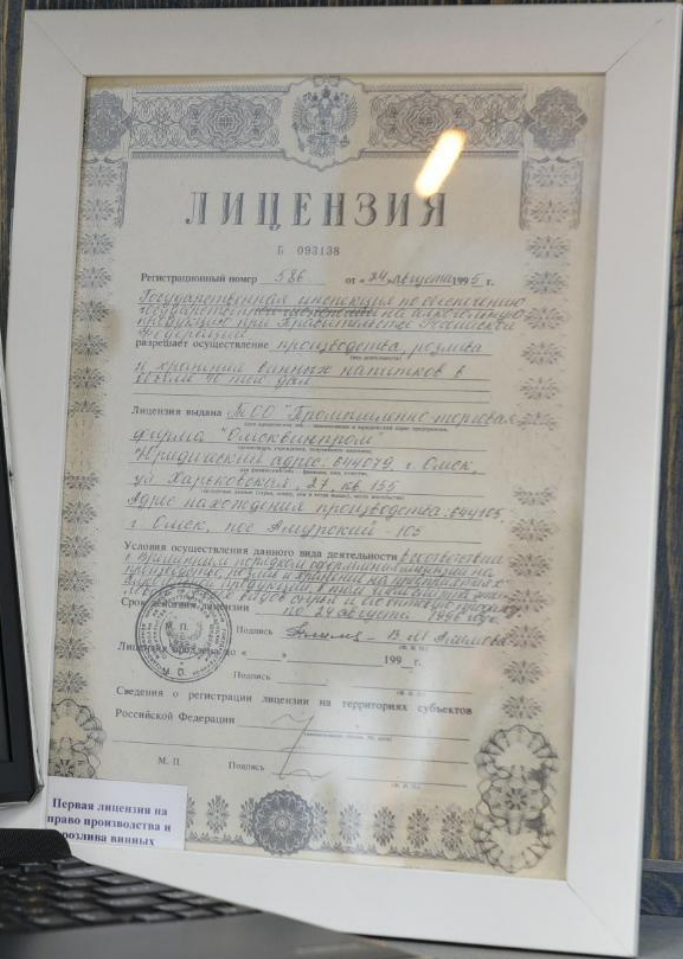 ЛИЦЕНЗИЯ
Б 093138
Регистрационный номер 586 от « 24 » августа 1995 г.
Государственная инспекция по обеспечению
государственной монополии на алкогольную
продукцию при Правительстве Российской
Федерации
разрешает осуществление производства, розлива
и хранения винных напитков в
объеме 40 тыс дал
Лицензия выдана "Промышленно-торговая
фирма "Омсквинпром"
Юридический адрес: 644079, г. Омск,
ул Харьковская, 27, кв. 155
Адрес нахождения производства: 644105,
г. Омск, пос Амурский - 105
Условия осуществления данного вида деятельности в соответствии
с Временным порядком
Срок действия лицензии по 24 августа 1996 года
М. П.
Подпись В М Акимова
Лицензия продлена до « » 199 г.
Подпись
Сведения о регистрации лицензии на территориях субъектов
Российской Федерации
М. П. Подпись
Первая лицензия на
право производства и
розлива винных